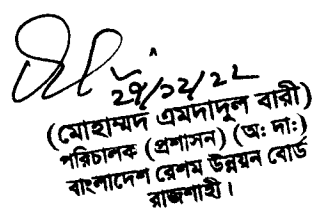 ২৭/১২/২২
(মোহাম্মদ এমদাদুল বারী)
পরিচালক (প্রশাসন) (অ: দা:)
বাংলাদেশ রেশম উন্নয়ন বোর্ড
রাজশাহী।